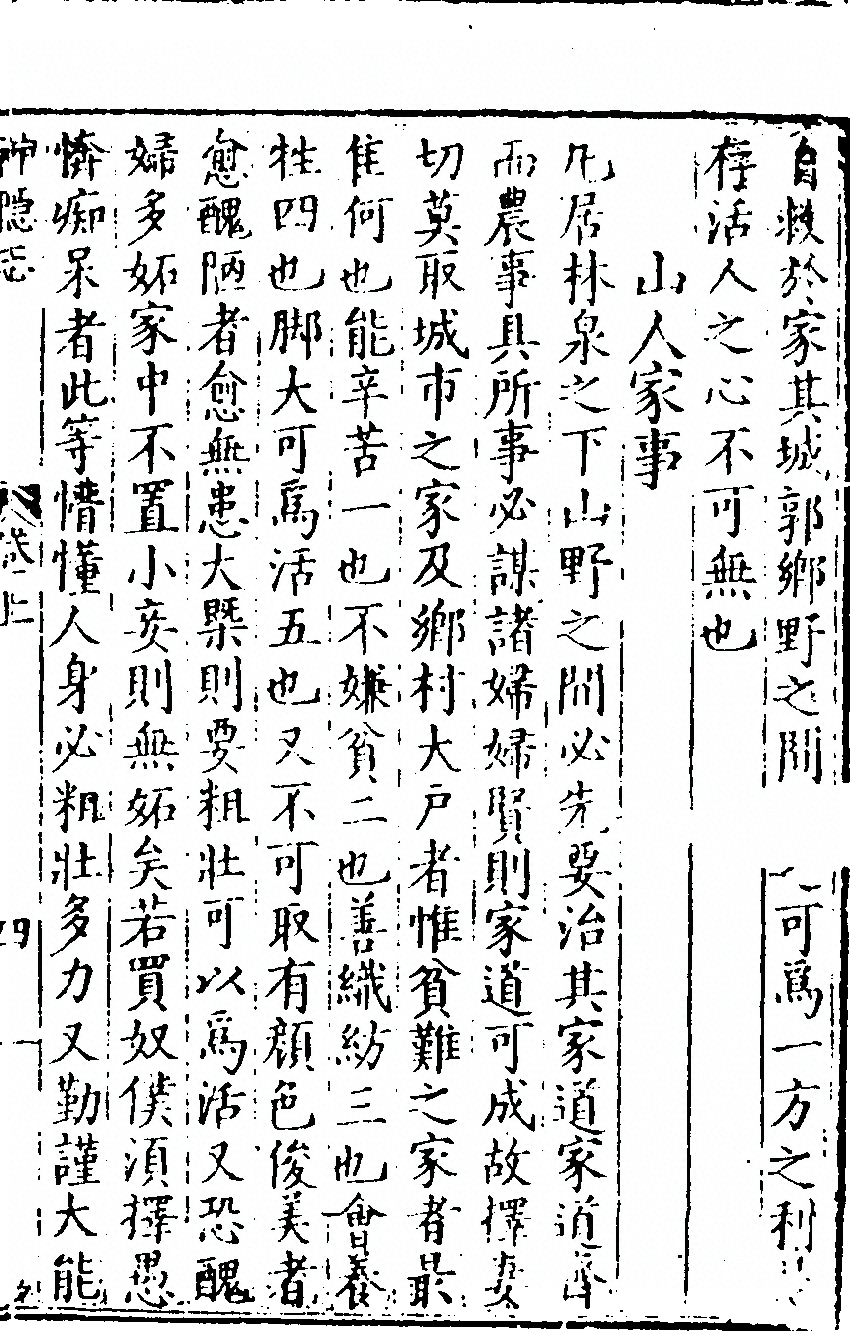 自救於家其城郭鄉野之間可爲一方之利
存活人之心不可無也
山人家事
凡居林泉之下山野之間必先要治其家道家道齊
而農事具所事必謀諸婦婦賢則家道可成故擇妻
切莫取城市之家及鄉村大戸者惟貧難之家者最
隹何也能辛苦一也不嫌貧二也善織紡三也會養
牲四也脚大可爲活五也又不可取有顔色俊美者
愈醜陋者愈無患大槩則要粗壯可以爲活又恐醜
婦多妬家中不置小妾則無妬矣若買奴僕須擇愚
憃痴呆者此等懵懂人身必粗壯多力又勤謹大能
神隠志
卷上
四